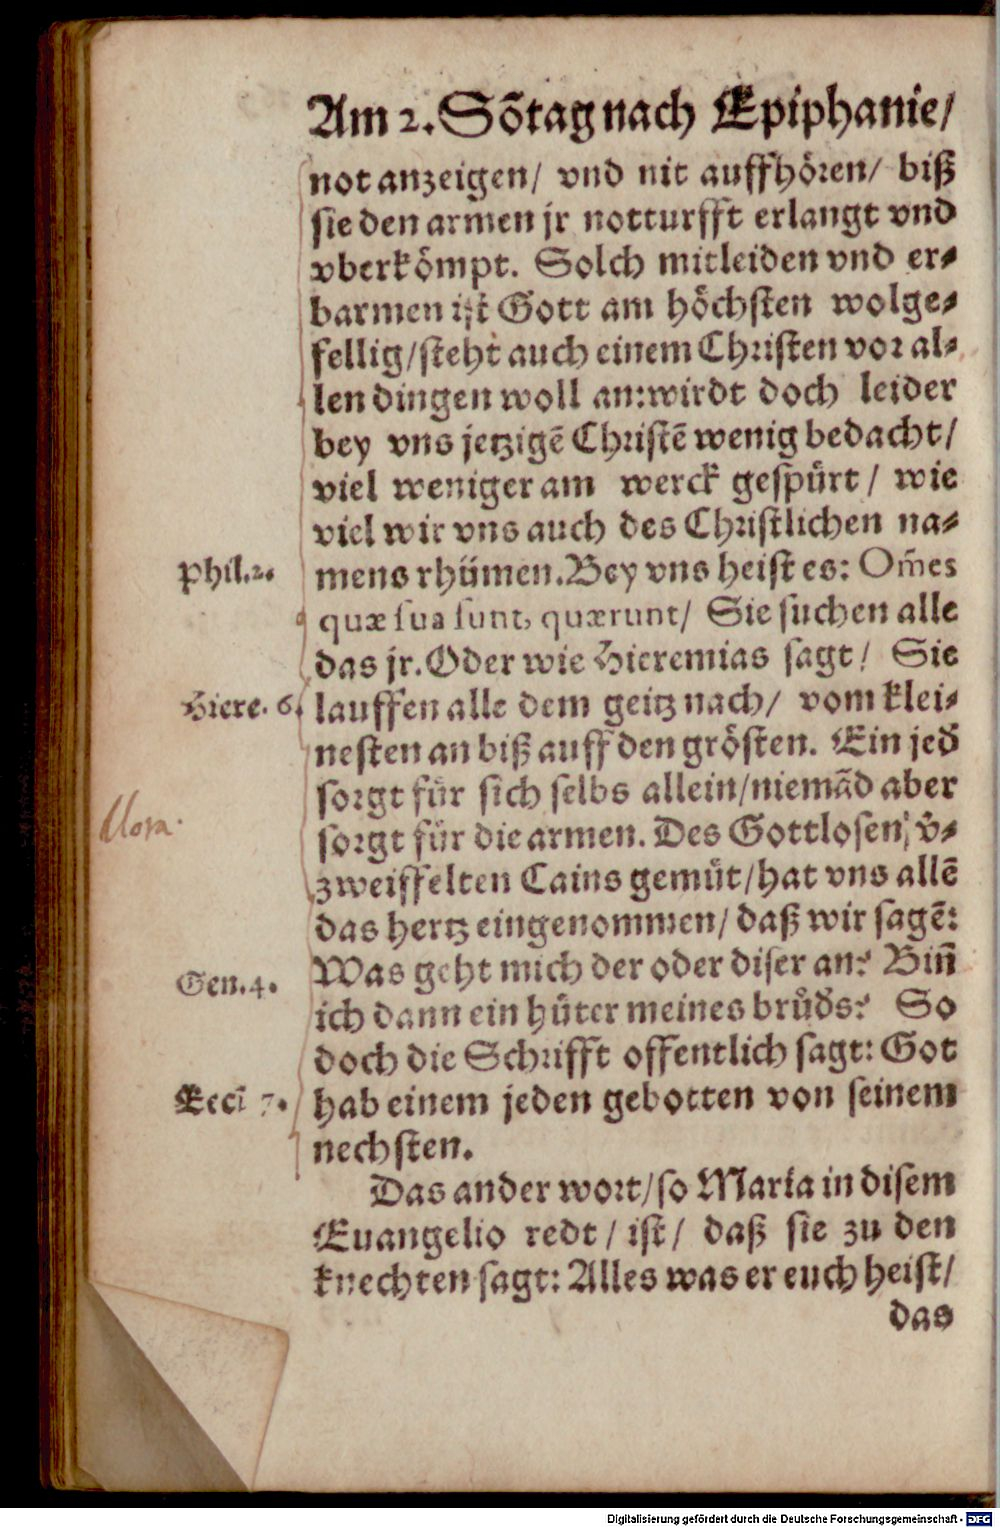 Am 2. Sõtag nach Epiphanie/
not anzeigen/ vnd nit auffhören/ biß
sie den armen jr notturfft erlangt vnd
vberkömpt. Solch mitleiden vnd er-
barmen ist Gott am höchsten wolge-
fellig/ steht auch einem Christen vor al-
len dingen woll an: wirdt doch leider
bey vns jetzigẽ Christẽ wenig bedacht/
viel weniger am werck gespürt/ wie
viel wir vns auch des Christlichen na-
Phil. 2. mens rhümen. Bey vns heist es: Om̃es
quæ sua sunt, quærunt/ Sie suchen alle
das jr. Oder wie Hieremias sagt/ Sie
Hiere. 6. lauffen alle dem geitz nach/ vom klei-
nesten an biß auff den grösten. Ein jed̃
sorgt für sich selbs allein/ niemãd aber
Nota. sorgt für die armen. Des Gottlosen, ṽ-
zweiffelten Cains gemüt/ hat vns allẽ
das hertz eingenommen/ daß wir sagẽ:
Gen. 4. Was geht mich der oder diser an? Biñ
ich dann ein hüter meines brůd̃s? So
doch die Schrifft offentlich sagt: Got
Eccl̃ 7. hab einem jeden gebotten von seinem
nechsten.
Das ander wort/ so Maria in disem
Euangelio redt/ ist/ daß sie zu den
knechten sagt: Alles was er euch heist/
das
Digitalisierung gefördert durch die Deutsche Forschungsgemeinschaft - DFG